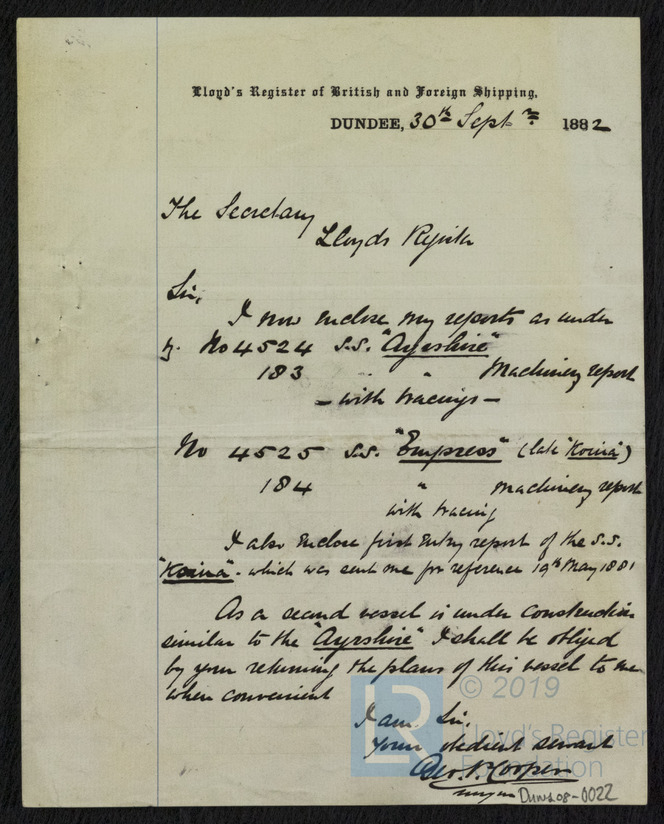 Lloyd's Register of British and Foreign Shipping,
DUNDEE, 30th Septr 1882
The Secretary
Lloyds Register
Sir,
I now enclose my reports as under
No 4524 s.s. "Ayrshire"
183 " " Machinery report
- with tracings -
No 4525 s.s. "Empress" (late "Korina")
184 " Machinery report
with tracing
I also enclose first entry report of the s.s.
"Korina". which was sent me for reference 19th May 1881
As a second vessel is under construction
similar to the "Ayrshire" I shall be obliged
by your returning the plans of this vessel to me
when convenient
I am Sir,
your obedient servant
Geo. N. Cooper
DUN208-0022
© 2019
LR
Lloyd's Register
Foundation